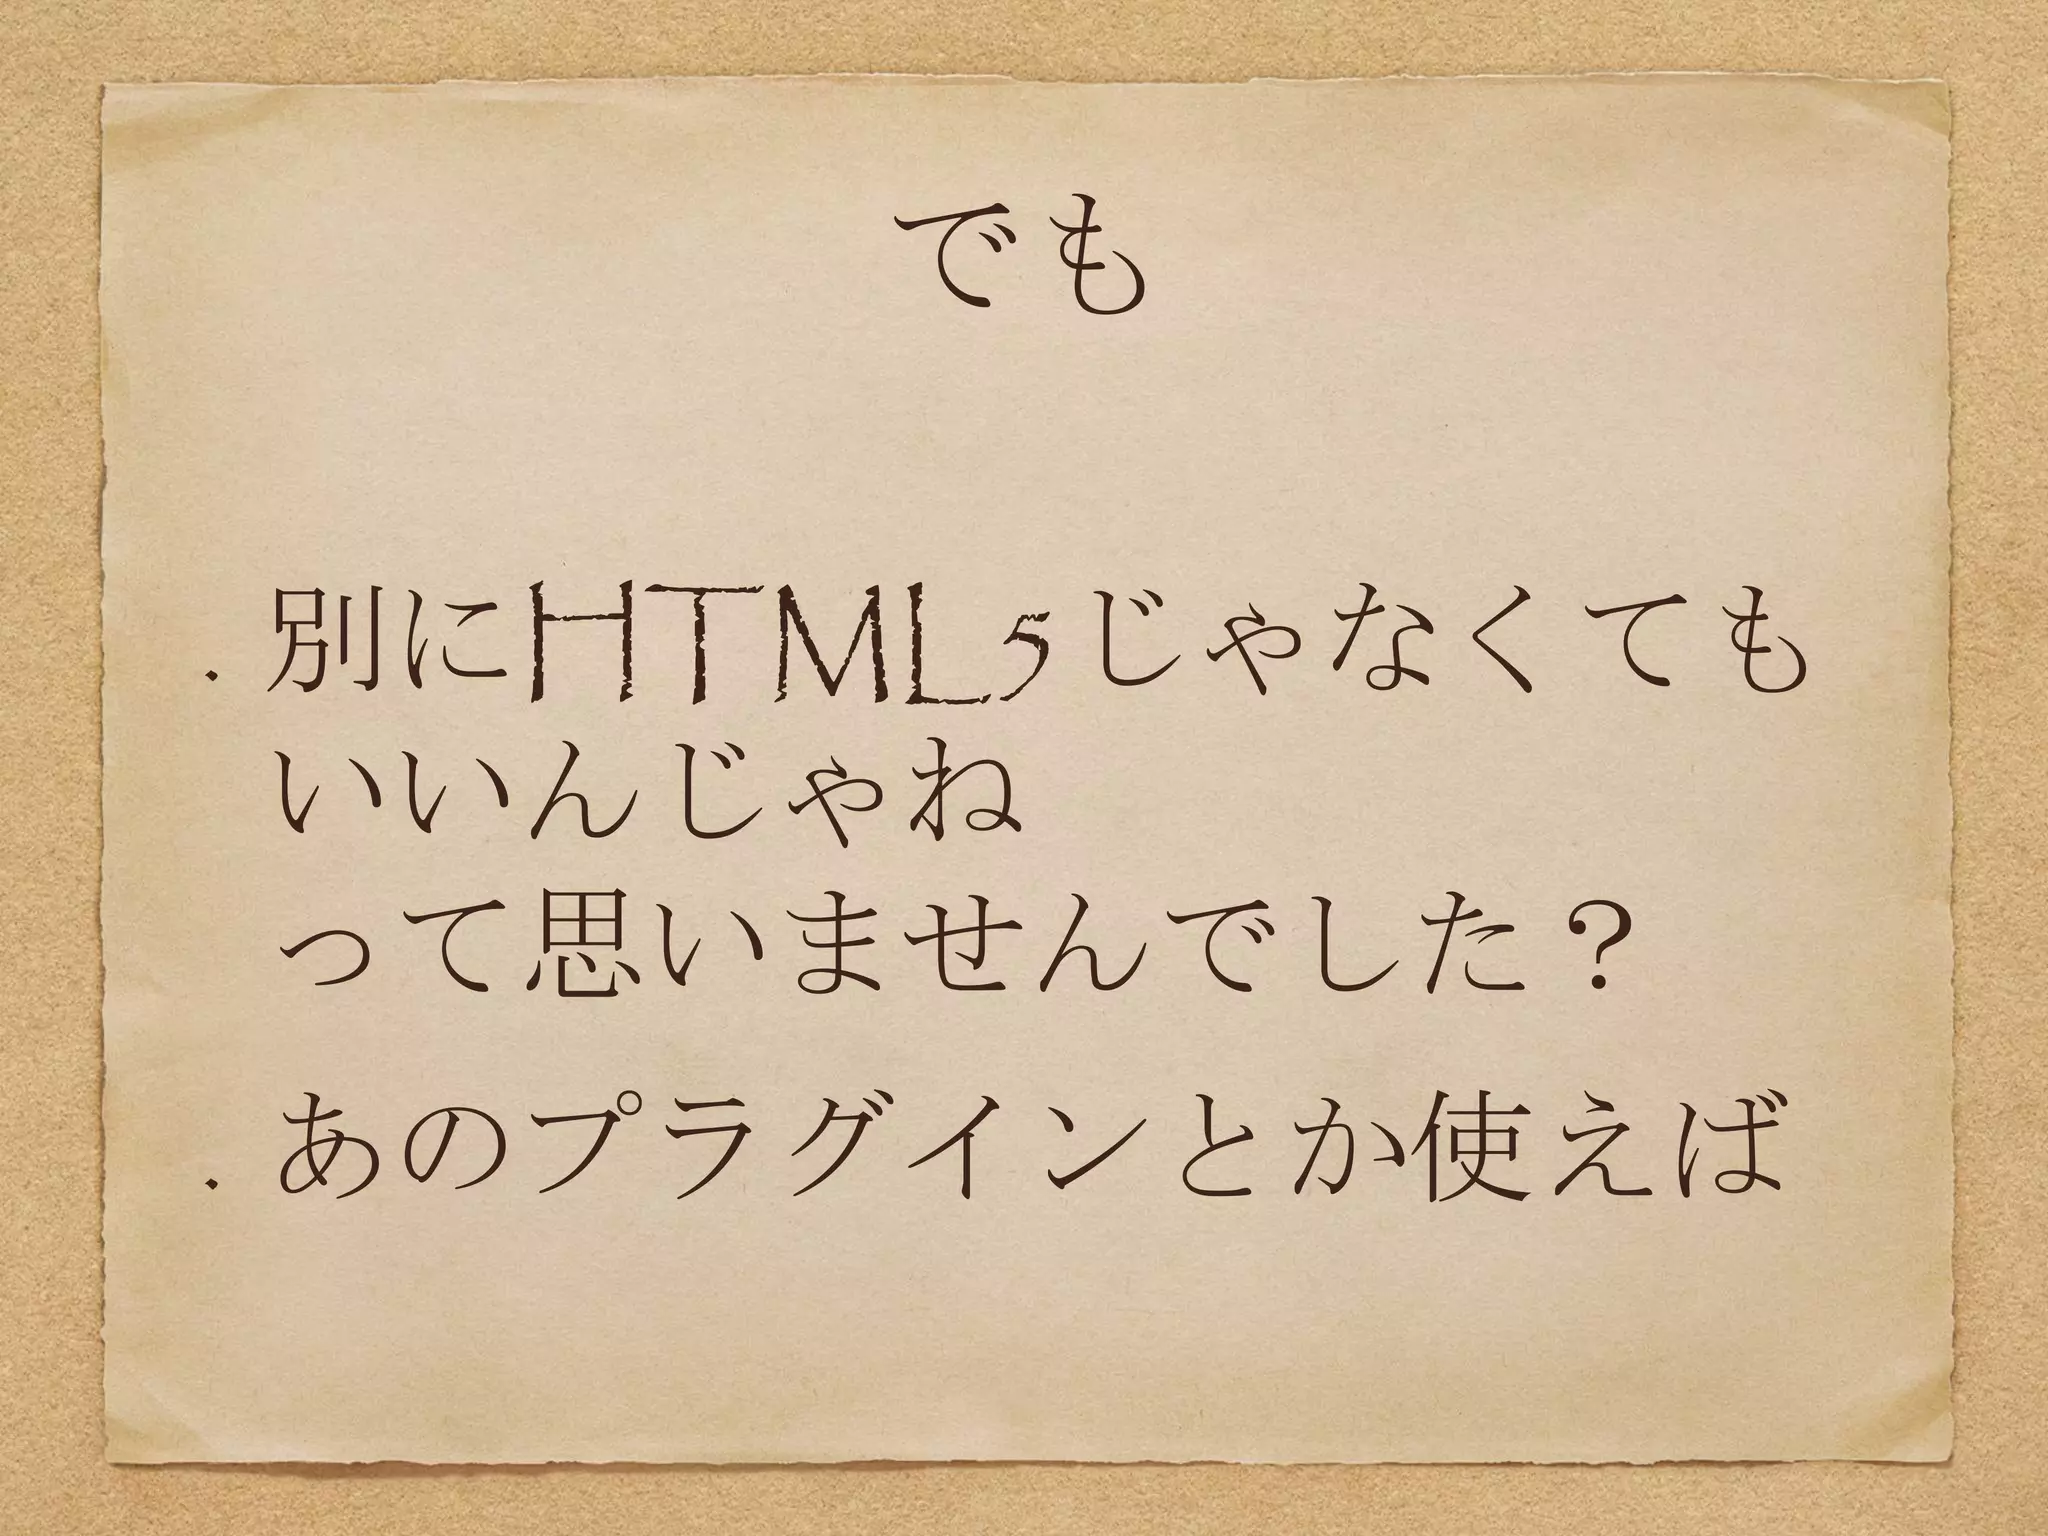 でも
・別にHTML5じゃなくても
いいんじゃね
って思いませんでした？
・あのプラグインとか使えば